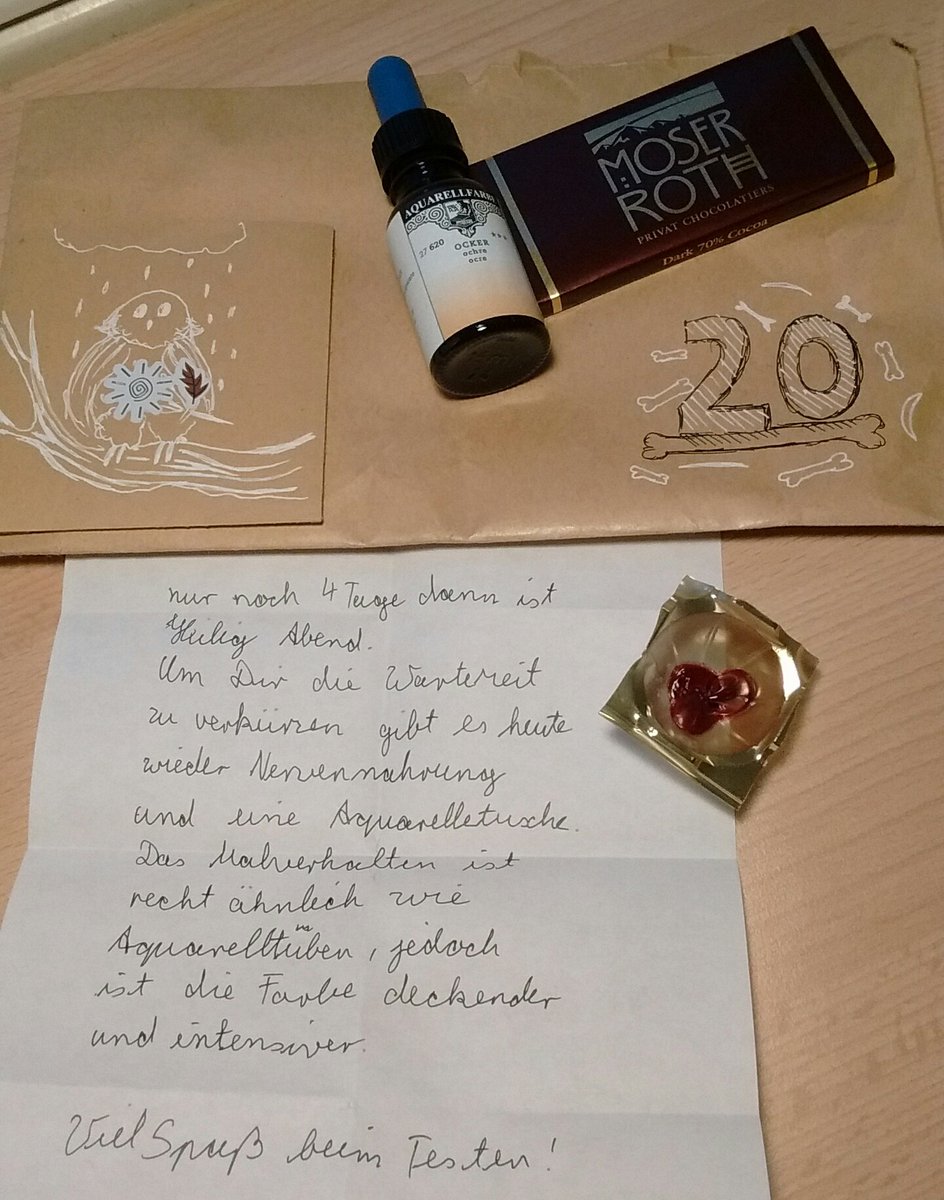 MOSER
ROTH
PRIVAT CHOCOLATIERS
Dark 70% Cocoa
AQUARELLFARBE
27 620
OCKER
ochre
ocre
20
nur noch 4 Tage dann ist
Heilig Abend.
Um Dir die Wartezeit
zu verkürzen gibt es heute
wieder Nervennahrung
und eine Aquarelletusche.
Das Malverhalten ist
recht ähnlich wie
Aquarelltuben, jedoch
ist die Farbe deckender
und intensiver.
Viel Spaß beim Testen!